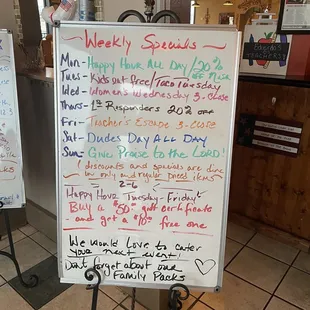 Weekly Specials
Mon- Happy Hour All Day /20%
off Mdse
Tues- Kids Eat free/Taco Tuesday
Wed- Women's Wednesday 3-Close
Thurs- 1st Responders 20% off
Fri- Teacher's Escape 3-Close
Sat- Dudes Day All Day
Sun- Give Praise to the Lord!
discounts and specials are dine
in only and regular priced items
2-6
Happy Hour Tuesday-Friday!
Buy a $50 gift certificate
and get a $10 free one
We would love to cater
your next event!
Don't forget about our
Family Packs